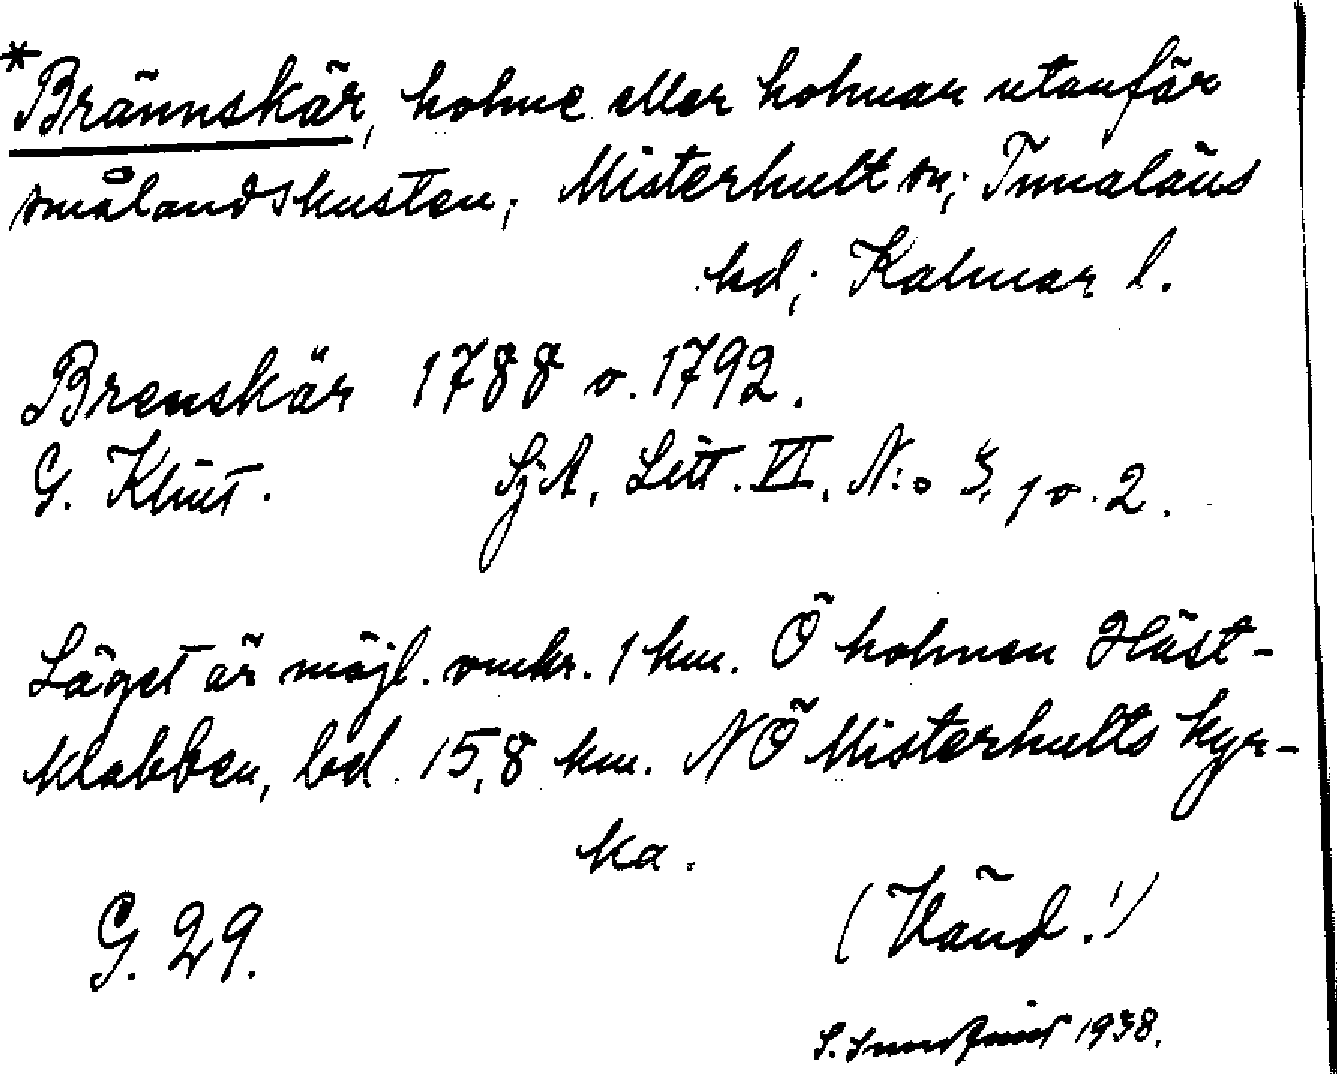 *Brännskär, holme eller holmar utanför
smålandskusten, Misterhult sn; Tunaläns
hd; Kalmar l.
Brenskär 1788 o. 1792.
G. Klint. SjA, Litt. VI, N:o 3, 1 o. 2.
Läget är möjl. omkr. 1 km. Ö holmen Häst-
klabben, bel. 15,8 km. NÖ Misterhults kyr-
ka.
G. 29. (Vänd!)
S. 1938.